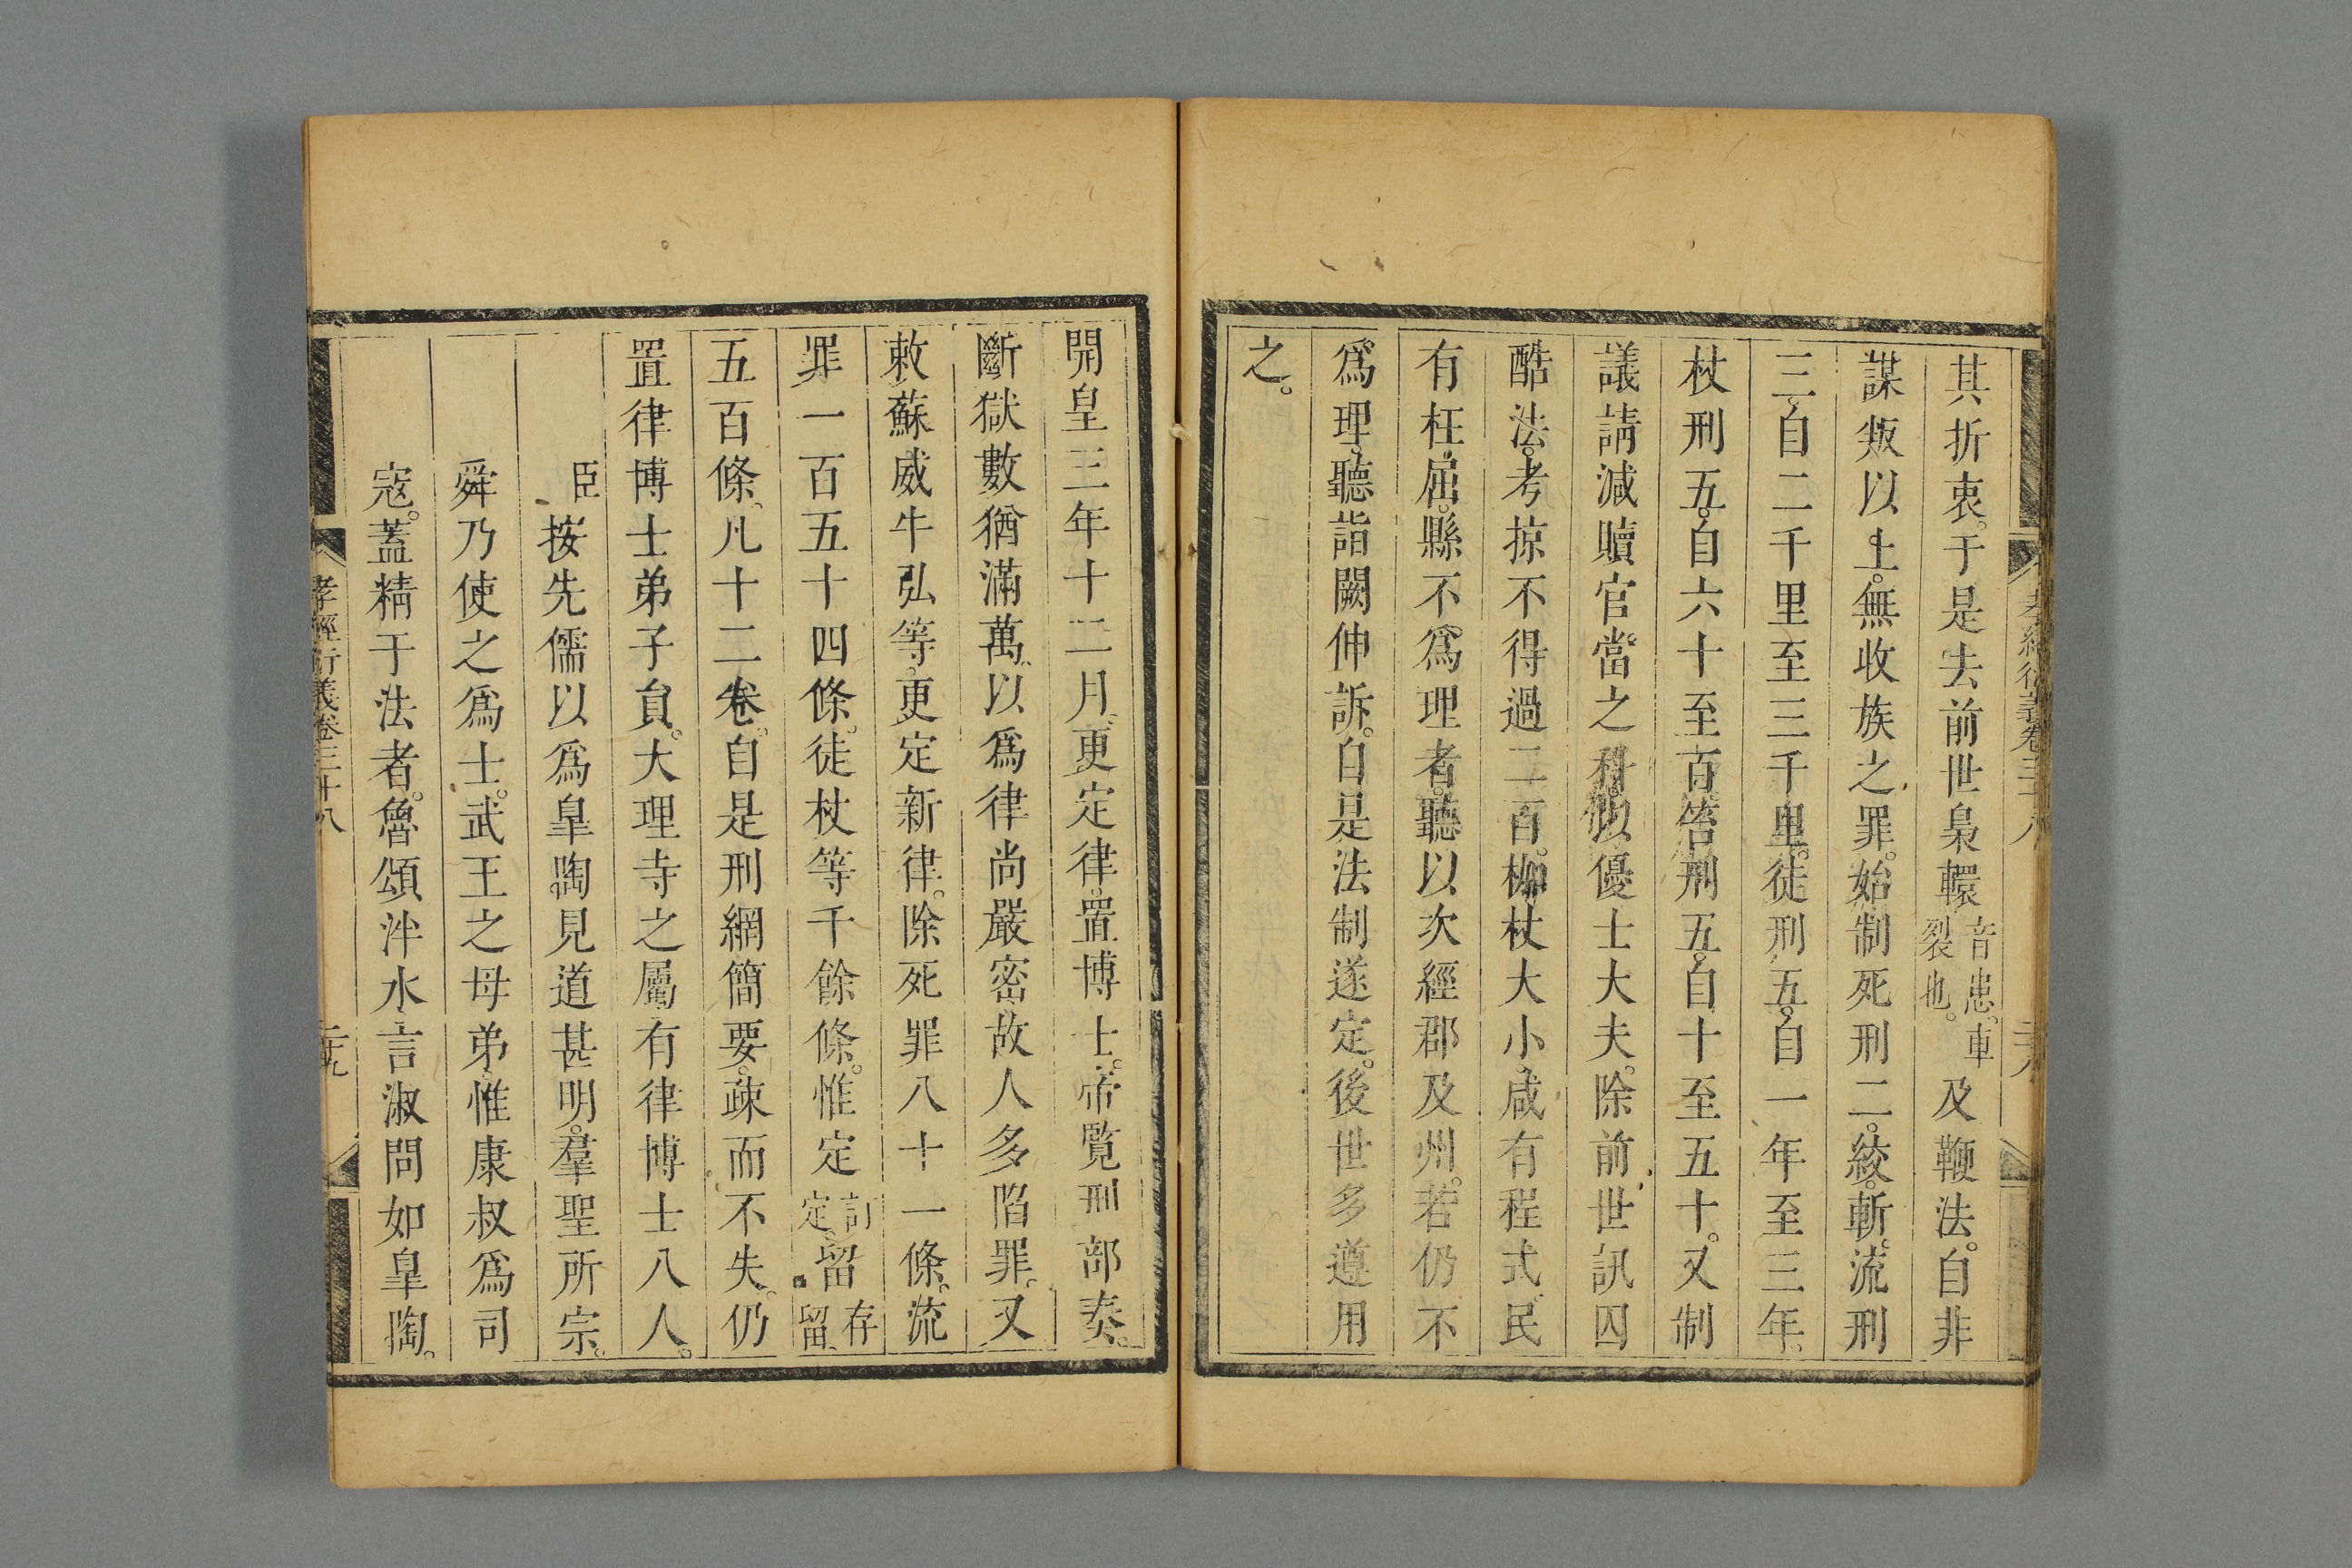 孝經衍義卷三十八
其折衷。于是去前世梟轘音患。車裂也。及鞭法。自非
謀叛以上。無收族之罪。始制死刑二。絞。斬。流刑
三。自二千里至三千里。徒刑五。自一年至三年。
杖刑五。自六十至百。笞刑五。自十至五十。又制
議請減贖官當之科。以優士大夫。除前世訊囚
酷法。考掠不得過二百。枷杖大小。咸有程式。民
有枉屈。縣不爲理者。聽以次經郡及州。若仍不
爲理。聽詣闕伸訴。自是法制遂定。後世多遵用
之。
開皇三年十二月。更定律。置博士。帝覽刑部奏。
斷獄數猶滿萬。以爲律尚嚴密。故人多陷罪。又
敕蘇威牛弘等。更定新律。除死罪八十一條。流
罪一百五十四條。徒杖等千餘條。惟定訂定。留存留。
五百條。凡十二卷。自是刑網簡要。疎而不失。仍
置律博士弟子員。大理寺之屬。有律博士八人。
臣按先儒以爲皐陶見道甚明。羣聖所宗。
舜乃使之爲士。武王之母弟。惟康叔爲司
寇。蓋精于法者。魯頌泮水。言淑問如皐陶。
孝經衍義卷三十八 二十九